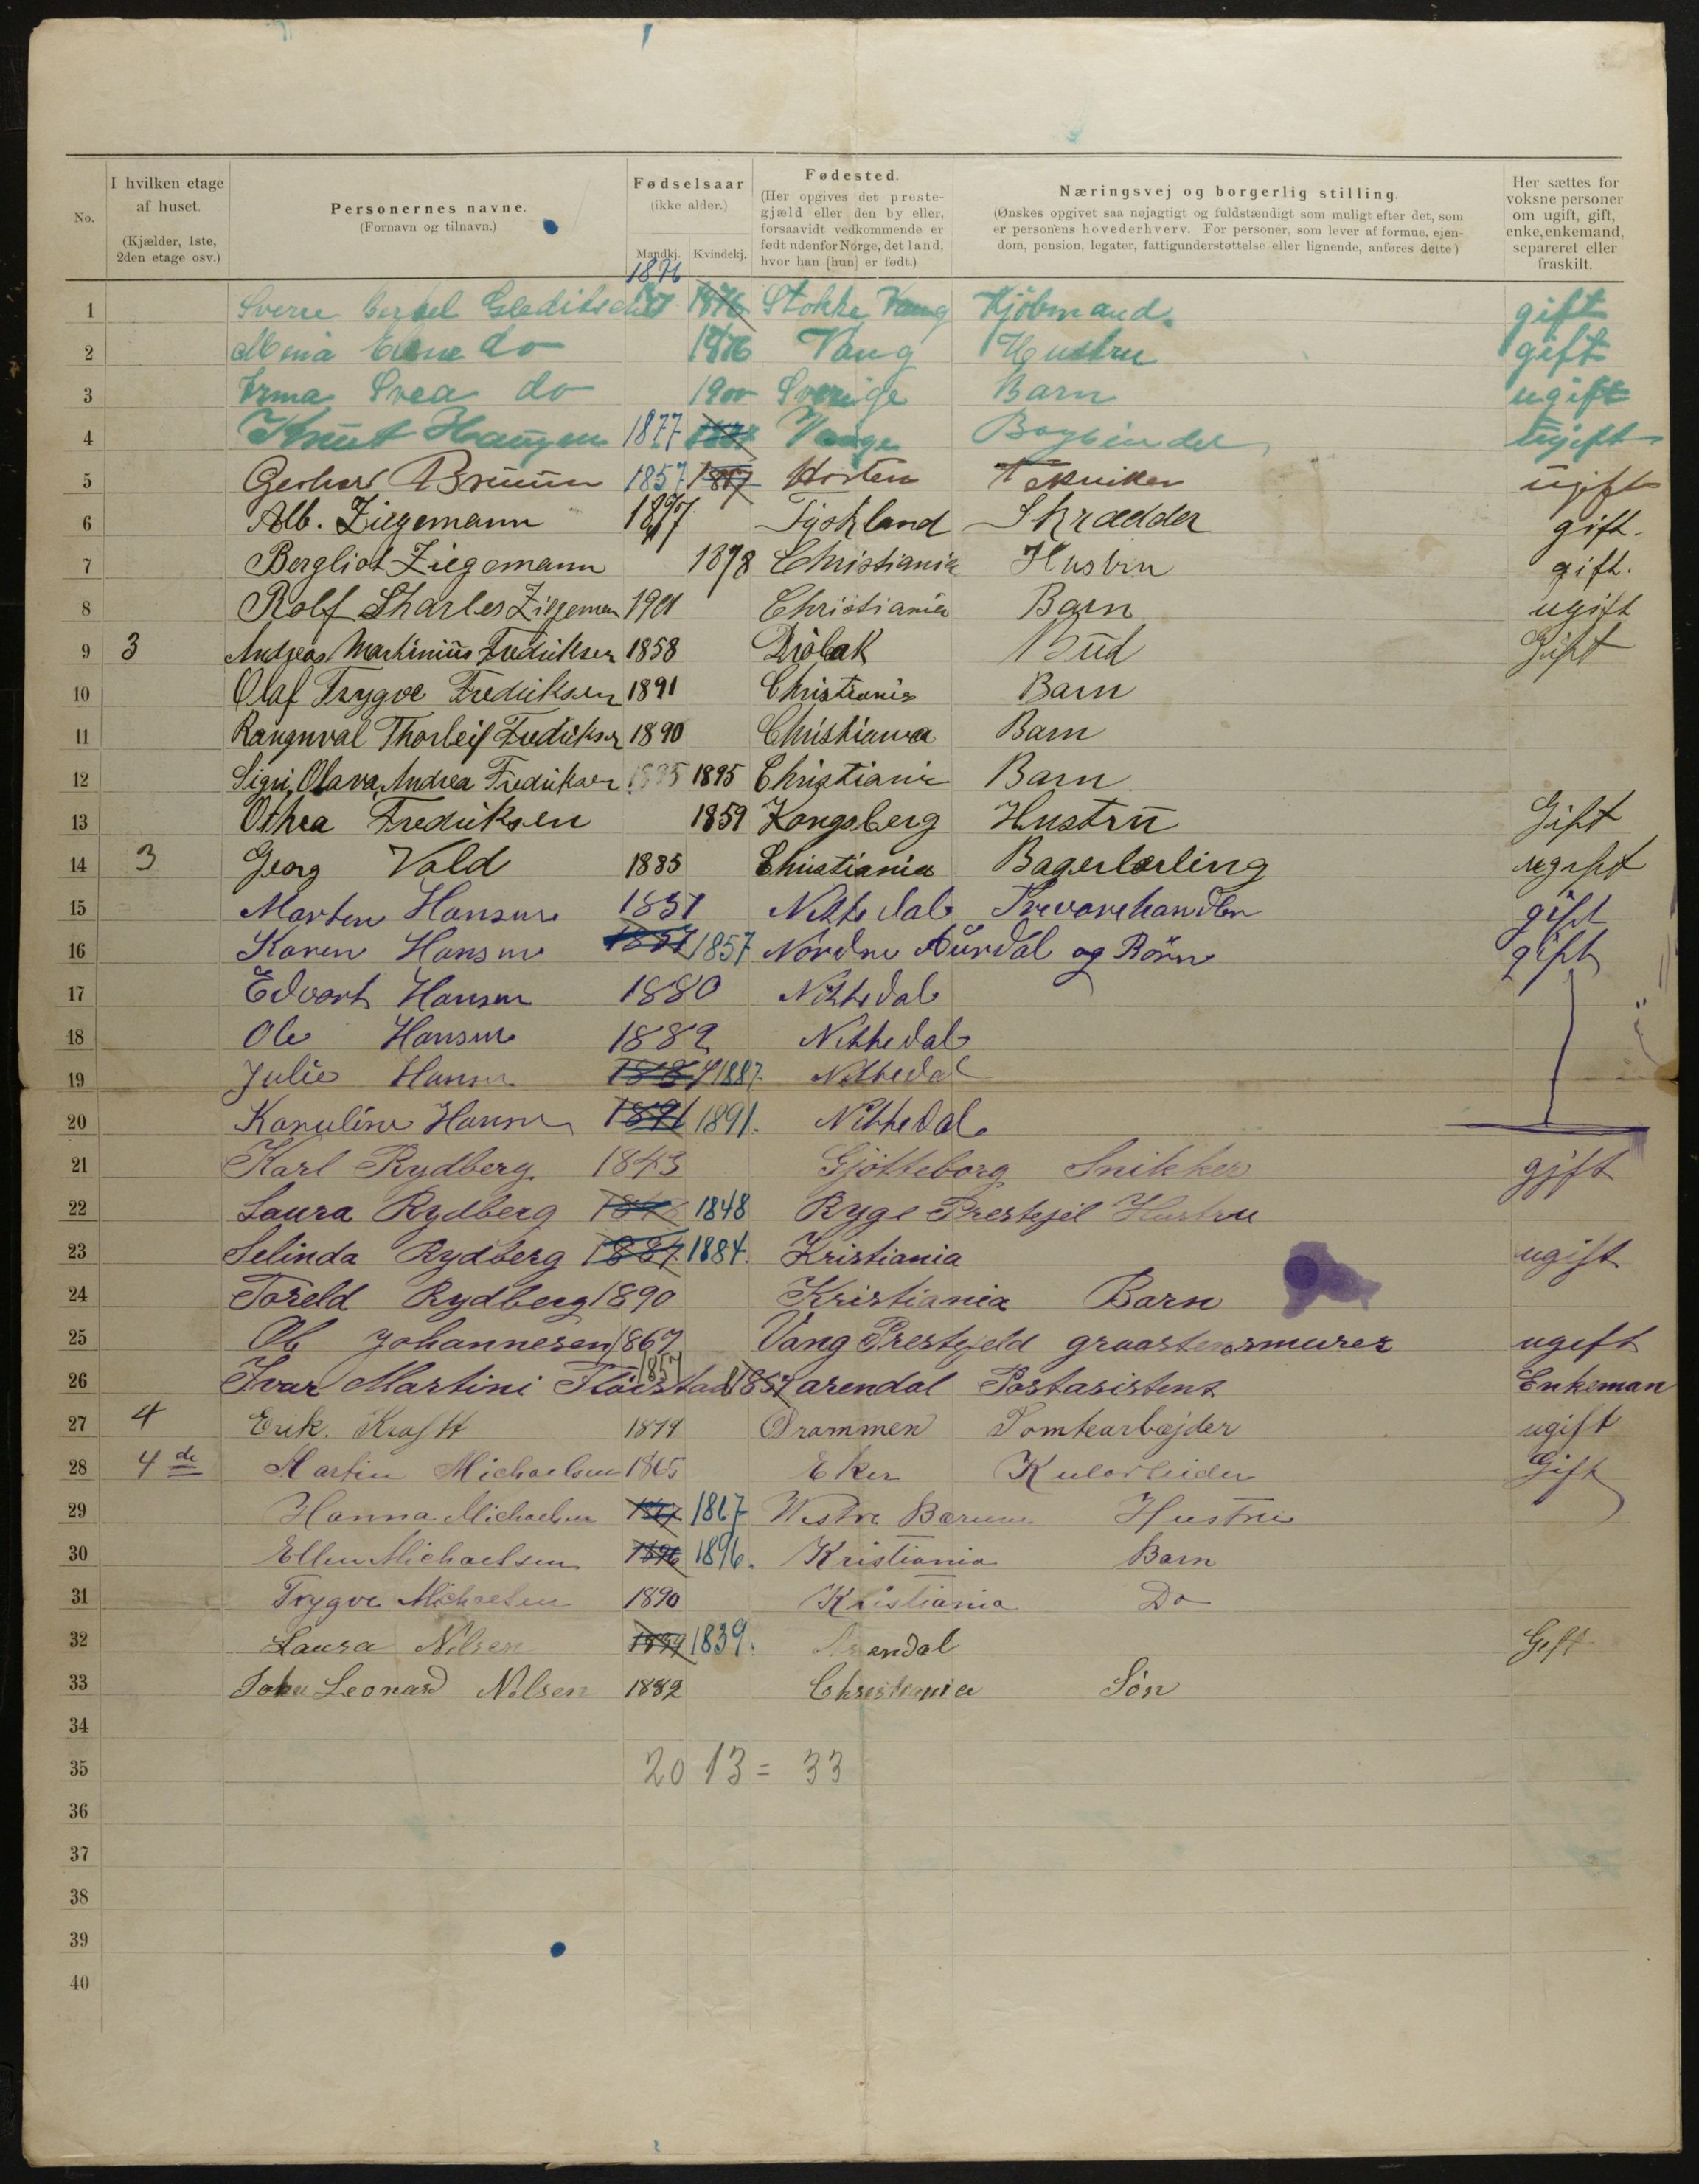 No.
I hvilken etage af huset. (Kjælder, 1ste, 2den etage osv.)
Personernes navne. (Fornavn og tilnavn.)
Fødselsaar (ikke alder.) Mandkj. Kvindekj.
Fødested. (Her opgives det prestegjæld eller den by eller, forsaavidt vedkommende er født udenfor Norge, det land, hvor han [hun] er født.)
Næringsvej og borgerlig stilling. (Ønskes opgivet saa nøjagtigt og fuldstændigt som muligt efter det, som er personens hovederhverv. For personer, som lever af formue, ejendom, pension, legater, fattigunderstøttelse eller lignende, anføres dette)
Her sættes for voksne personer om ugift, gift, enke, enkemand, separeret eller fraskilt.
1876
1 Sverre Gleditsch 1876 Stokke Vang Kjöbmand gift
2 do 1876 Vang Hustru gift
3 Irma Svea do 1900 Sverige Barn ugift
4 Knut Haugen 1877 Bogbinder ugift
5 Gerhard Bruun 1857 1857 Horten Tekniker ugift
6 Alb. Ziegemann 1877 Tyskland Skrædder gift.
7 Bergliot Ziegemann 1878 Christiania Husbru gift.
8 Rolf Charles Ziegeman 1901 Christiania Barn ugift
9 3 Andreas Martinius Fredriksen 1858 Dröbak Bud Gift
10 Olaf Trygve Fredriksen 1891 Christiania Barn
11 Rangnval Thorleif Fredriksen 1890 Christiania Barn
12 Signi Olava Andrea Fredriksen 1895 1895 Christiania Barn
13 Othea Fredriksen 1859 Kongsberg Hustru Gift
14 3 Georg Vold 1885 Christiania Bagerlærling ugift
15 Morten Hansen 1851 Nittedal Trevarehandler gift
16 Karen Hansen 1857 1857 Nordre Aurdal og Börn gift
17 Edvart Hansen 1880 Nittedal
18 Ole Hansen 1882 Nittedal
19 Julie Hansen 1887 1887. Nittedal
20 Karuline Hansen 1891 1891. Nittedal
21 Karl Rydberg 1843 Gjötteborg Snikker gift
22 Laura Rydberg 1848 1848 Ryge Prestejel Hustru
23 Selinda Rydberg 1884 1884. Kristiania ugift
24 Toreld Rydberg 1890 Kristiania Barn
25 Ole Johannesen 1867 Vang Prestejeld graastensmurer ugift
1857
26 Ivar Martini Flöistad 1857 arendal Postasistent Enkeman
27 4 Erik. Krafft 1874 Drammen Tomtearbejder ugift
28 4de Martin Michaelsen 1865 Eker Kularbeider Gift
29 Hanna Michaelsen 1867 1867 Vestre Bærum Hustru
30 Ellen Michaelsen 1896 1896. Kristiania Barn
31 Trygve Michaelsen 1890 Kristiania Do
32 Laura Nilsen 1839 1839. Arendal Gift
33 John Leonard Nilsen 1882 Christiania Sön
34
35 20 13 = 33
36
37
38
39
40